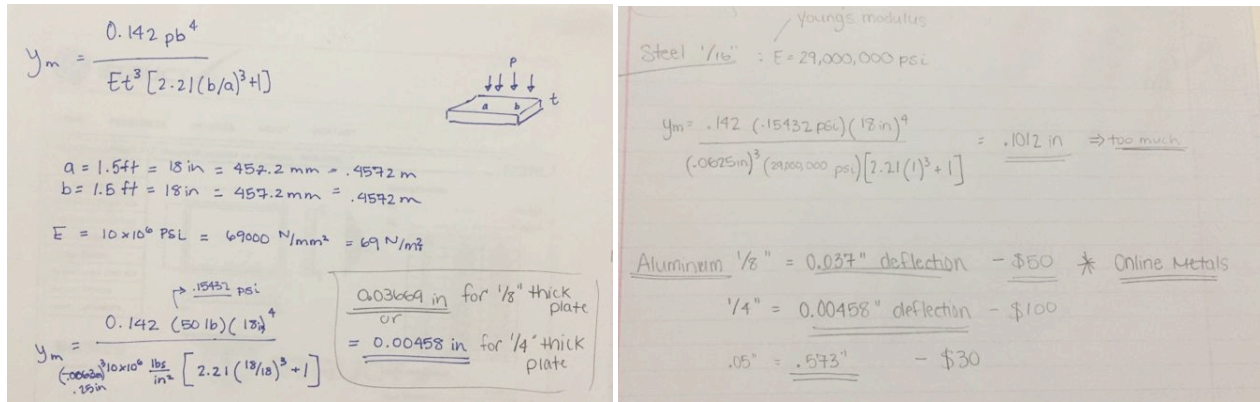 y_m = 0.142 pb^4 / Et^3 [2.21(b/a)^3+1]
P
a b t
a = 1.5ft = 18in = 457.2 mm = .4572 m
b = 1.5 ft = 18in = 457.2mm = .4572 m
E = 10x10^6 PSi = 69000 N/mm^2 = 69 N/m^2
→ .15432 psi
y_m = 0.142 (50 lb)(18in)^4 / 10x10^6 lbs/in^2 [2.21(18/18)^3+1]
.25in
0.03669 in for 1/8" thick plate
or
= 0.00458 in for 1/4" thick plate
young's modulus
Steel 1/16" : E = 29,000,000 psi
y_m = .142 (.15432 psi)(18in)^4 / (.0625in)^3 (29,000,000 psi)[2.21(1)^3+1] = .1012 in ⇒ too much
Aluminum 1/8" = 0.037" deflection - $50 * Online Metals
1/4" = 0.00458" deflection - $100
.05" = .573" - $30